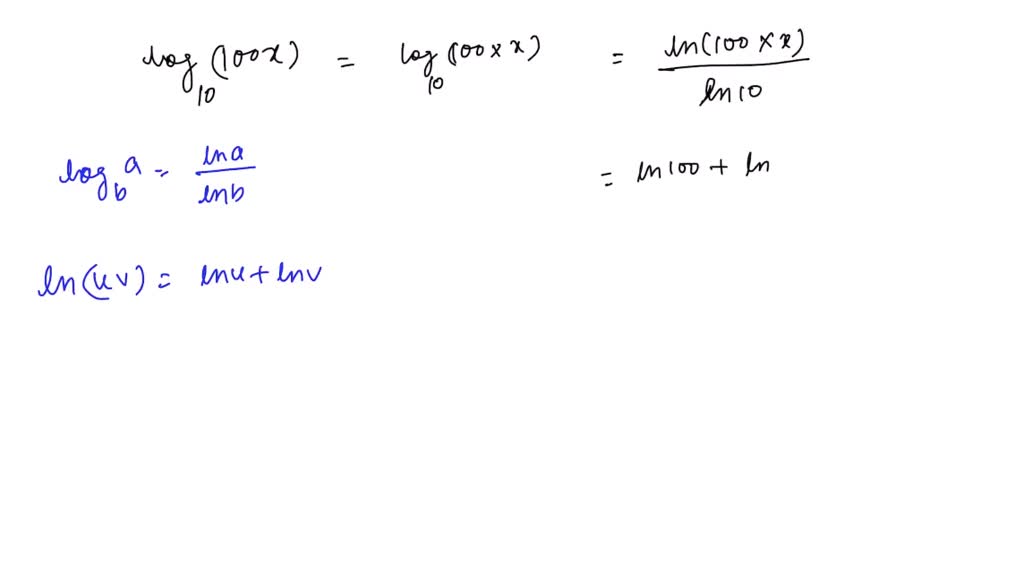 log₁₀(100x) = log₁₀(100×x) = ln(100×x)/ln10
log_b a = lna/lnb
= ln100 + ln
ln(uv) = lnu + lnv